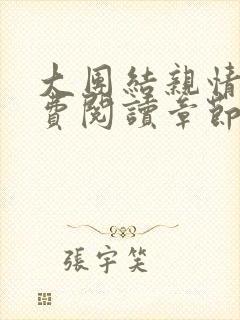 大團結親情
費閱讀章節
張宇笑